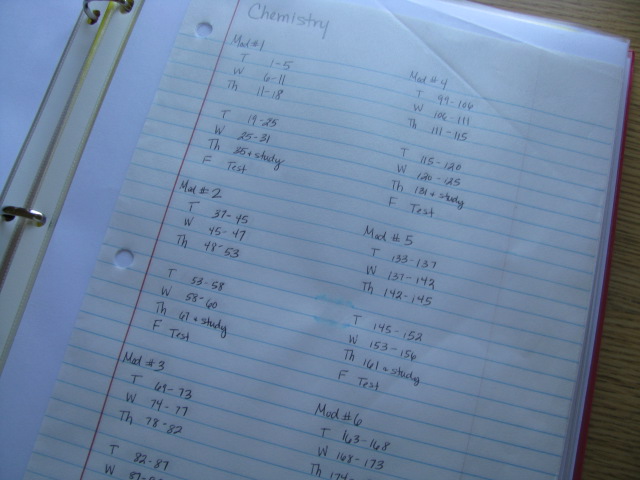 Chemistry
Mod #1
T 1-5
W 6-11
Th 11-18
T 19-25
W 25-31
Th 35 + study
F Test
Mod #2
T 37-45
W 45-47
Th 48-53
T 53-58
W 58-60
Th 67 + study
F Test
Mod #3
T 69-73
W 74-77
Th 78-82
T 82-87
W
Mod #4
T 99-106
W 106-111
Th 111-115
T 115-120
W 120-125
Th 131 + study
F Test
Mod #5
T 133-137
W 137-142
Th 142-145
T 145-152
W 153-156
Th 161 + study
F Test
Mod #6
T 163-168
W 168-173
Th